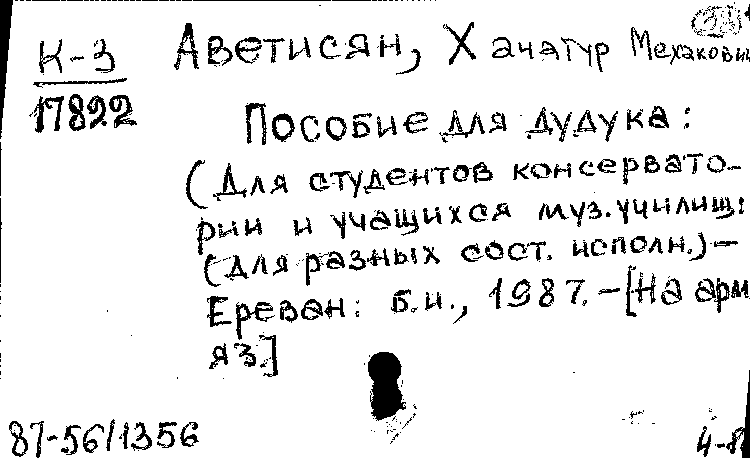 К-3 Аветисян, Хачатур Мехакови
17822
Пособие для дудука:
(Для студентов консервато-
рии и учащихся муз. училищ:
(для разных сост. исполн.) –
Ереван: б.и., 1987. – [На арм
яз.]
87-56/1356 4-8